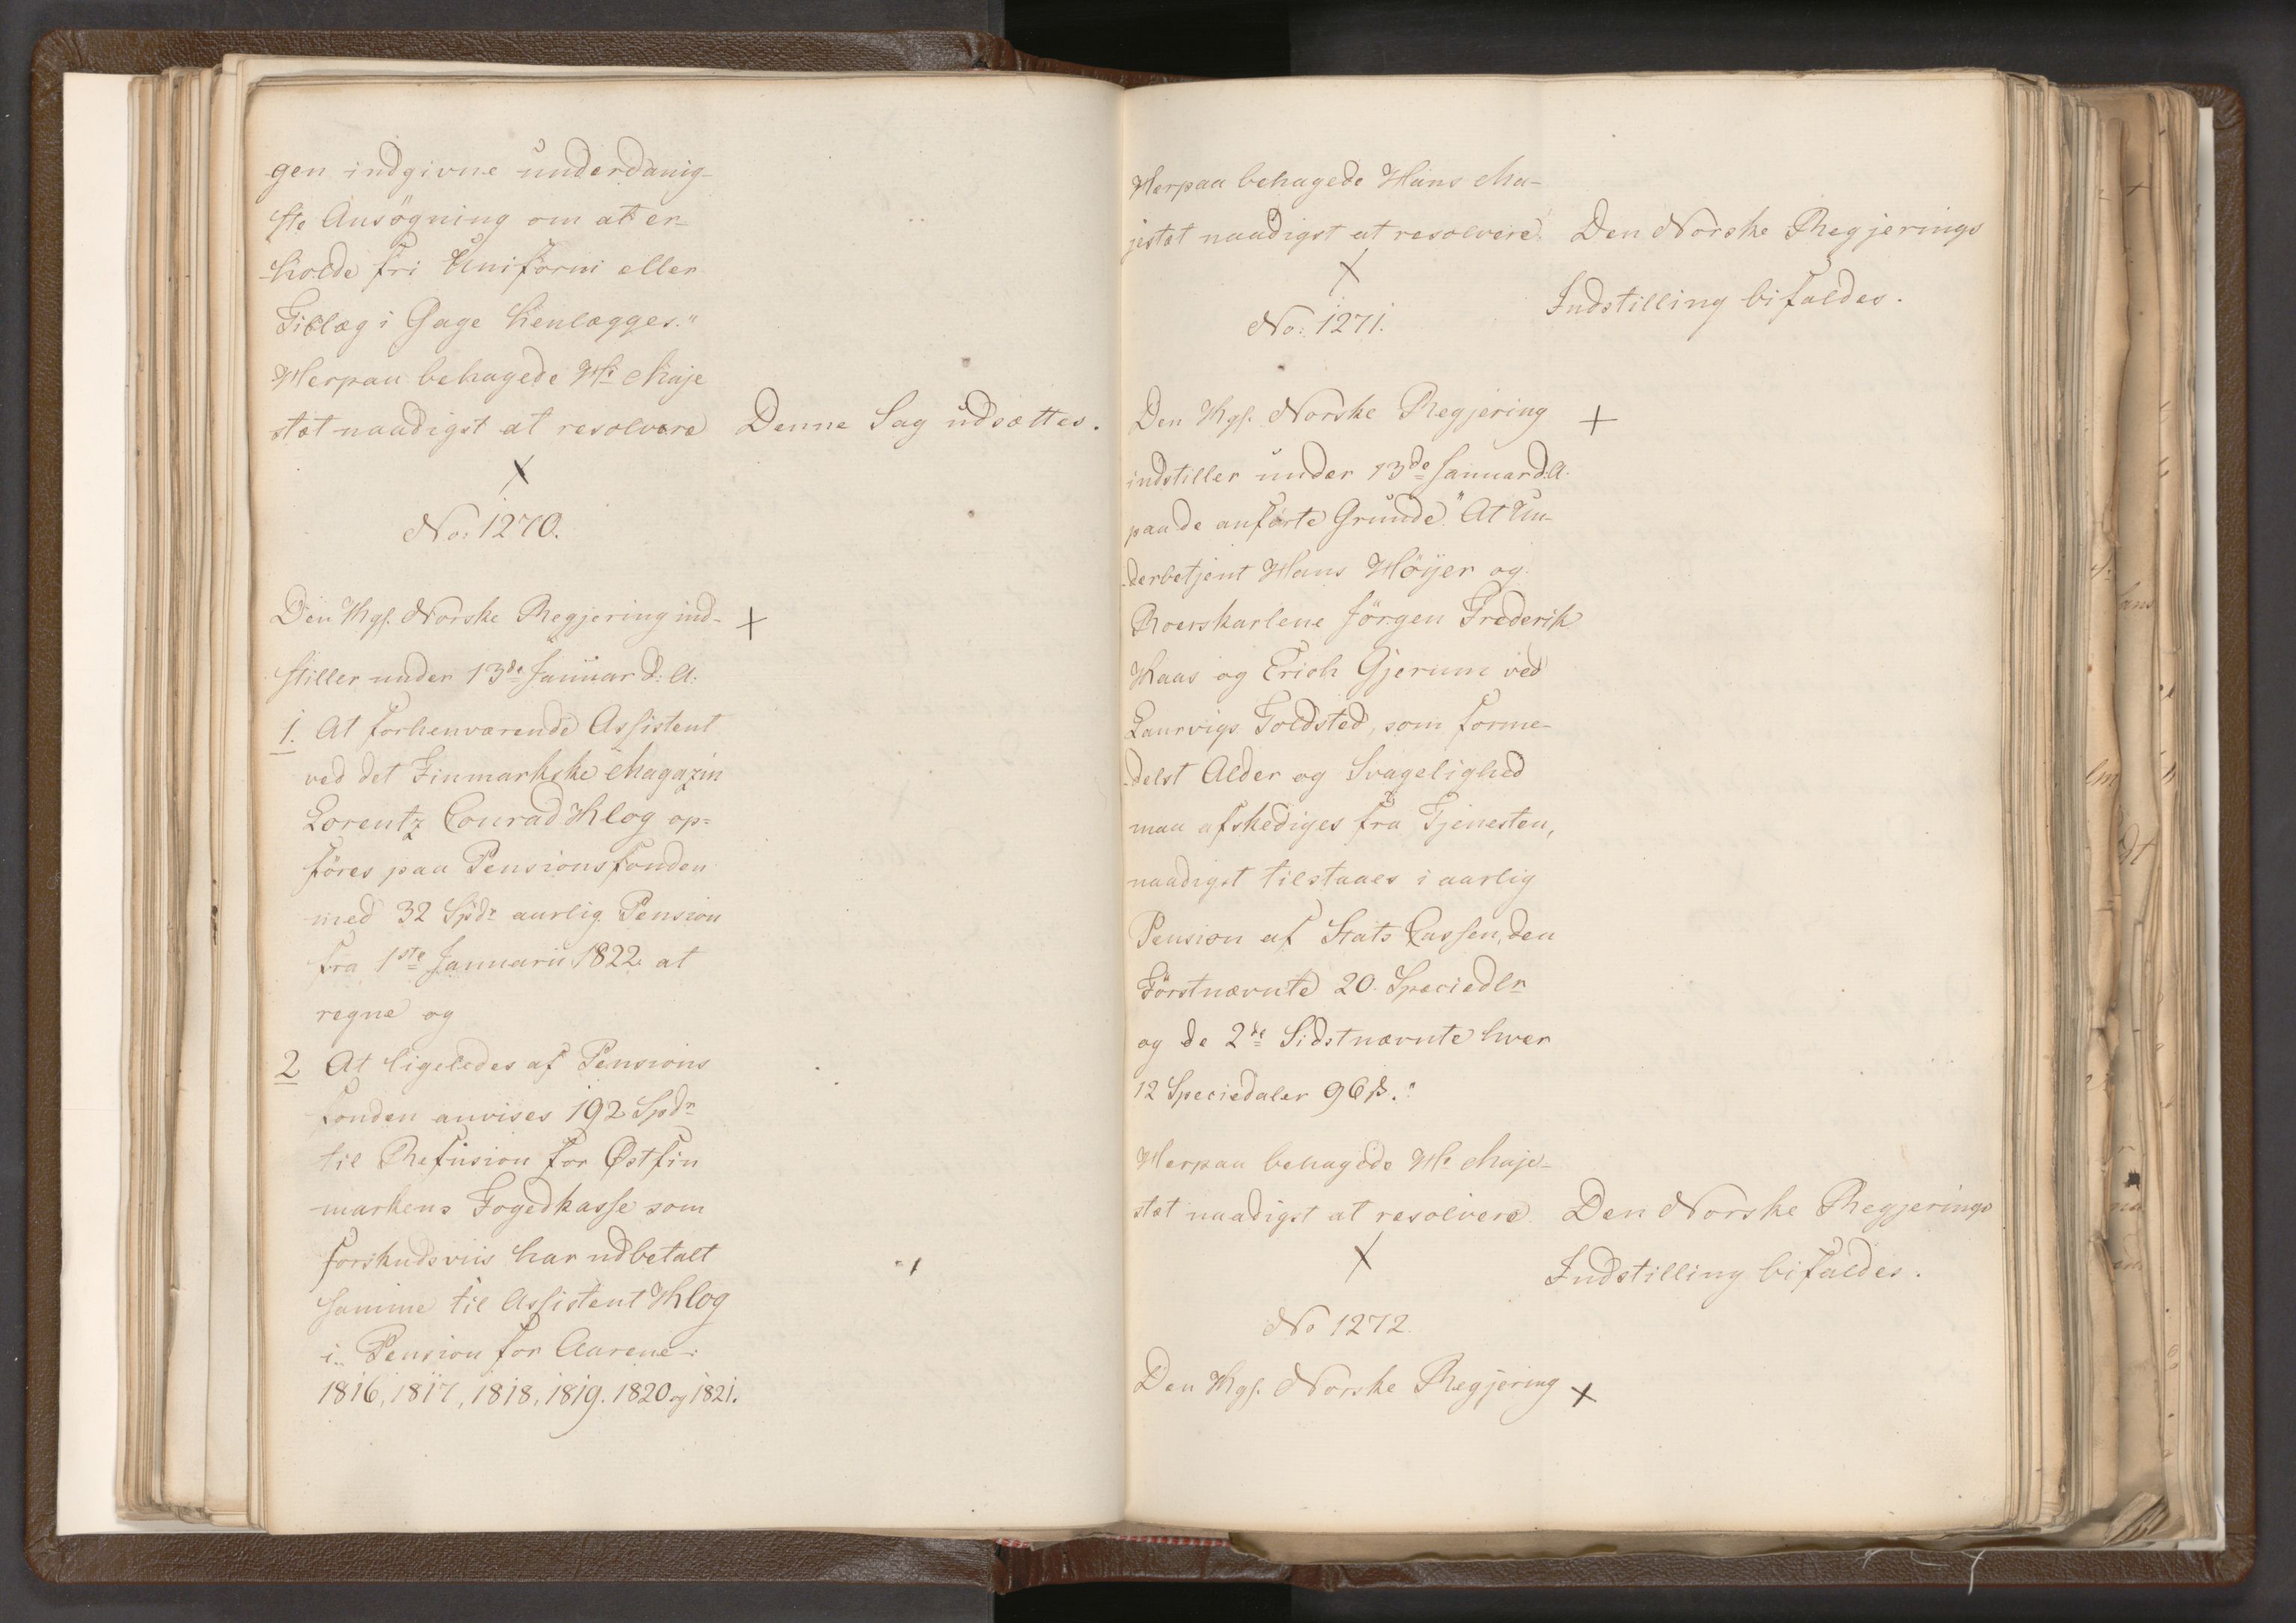 gen indgivne underdanig-
ste Ansögning om at er-
-holde fri Uniform eller
Tillæg i Gage henlægges."
Herpaa behagede Hs Maje
stæt naadigst at resolvere Denne Sag udsættes.
No: 1270.
Den Kgl. Norske Regjering ind-
stiller under 13de Januar d: A:
1. At forhenværende Assistent
ved det Finmarkske Magazin
Lorentz Conrad Klog op=
föres paa Pensionsfonden
med 32 Spdr aarlig Pension
fra 1ste Januarii 1822 at
regne og
2 At ligeledes af Pensions
fonden anvises 192 Spdr
til Refusion for Østfin
markens Fogedkasse som
forskudsviis har udbetalt
samme til Assistent Klog
i Pension for Aarene:
1816, 1817, 1818, 1819. 1820 og 1821.
Herpaa behagede Hans Ma-
jestæt naadigst at resolvere. Den Norske Regjerings
Indstilling bifaldes.
No: 1271.
Den Kgl. Norske Regjering
indstiller under 13de Januar d:A:
paa de anförte Grunde "At Un-
-derbetjent Hans Höyer og
Roerskarlene Jörgen Frederik
Haas og Erich Gjerum ved
Laurvigs Toldsted, som forme-
-delst Alder og Svagelighed
maa afskediges fra Tjenesten,
naadigst tilstaaes i aarlig
Pension af Stats Cassen, den
Förstnævnte 20 Speciedlr
og de 2de Sidstnævnte hver
12 Speciedaler 96 ß."
Herpaa behagede Hs Maje-
stæt naadigst at resolvere. Den Norske Regjerings
Indstilling bifaldes.
No 1272.
Den Kgl. Norske Regjering